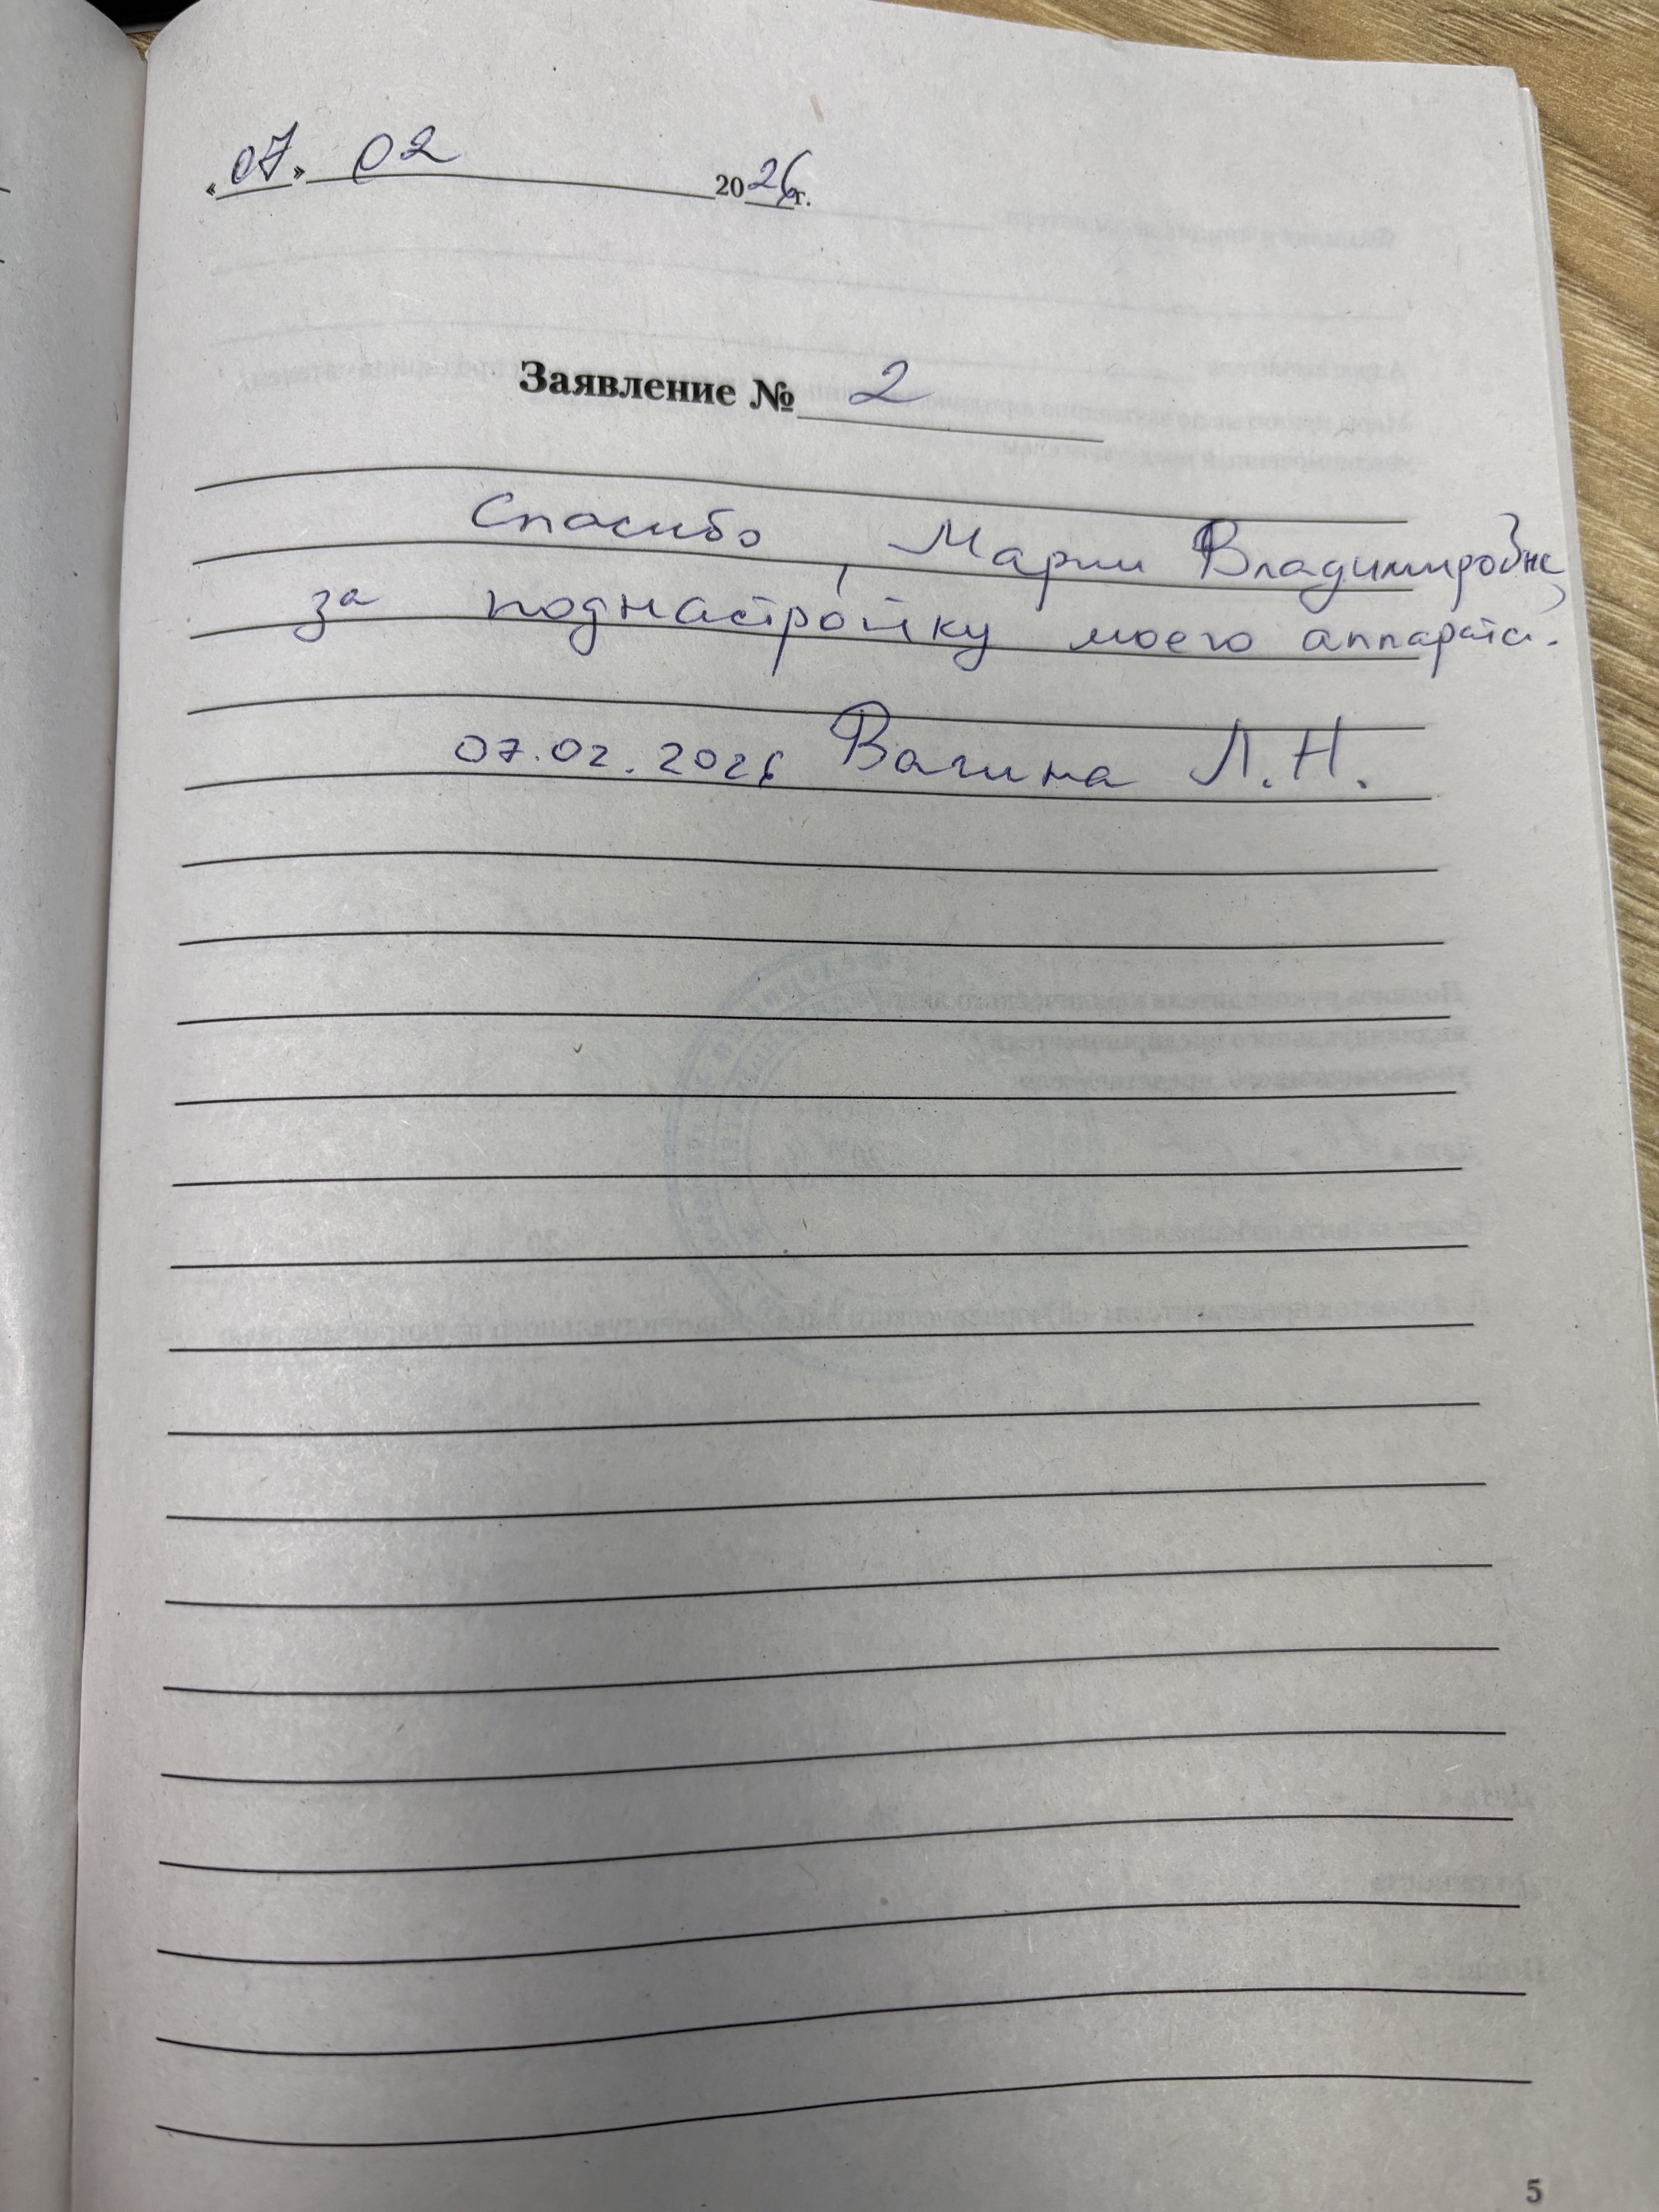 «07» 02 2026 г.
Заявление № 2
Спасибо, Марии Владимировне,
за поднастройку моего аппарата.
07.02.2026 Вагина Л.Н.
5